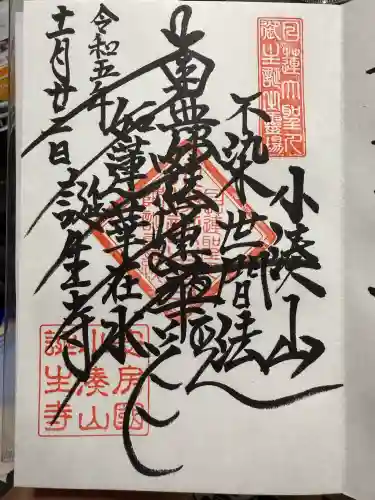 日蓮大聖人
御生誕生霊場
小湊山
不染世間法
南無妙法蓮華経
如蓮華在水
誕生寺
令和五年
十一月廿二日
安房國
小湊山
誕生寺